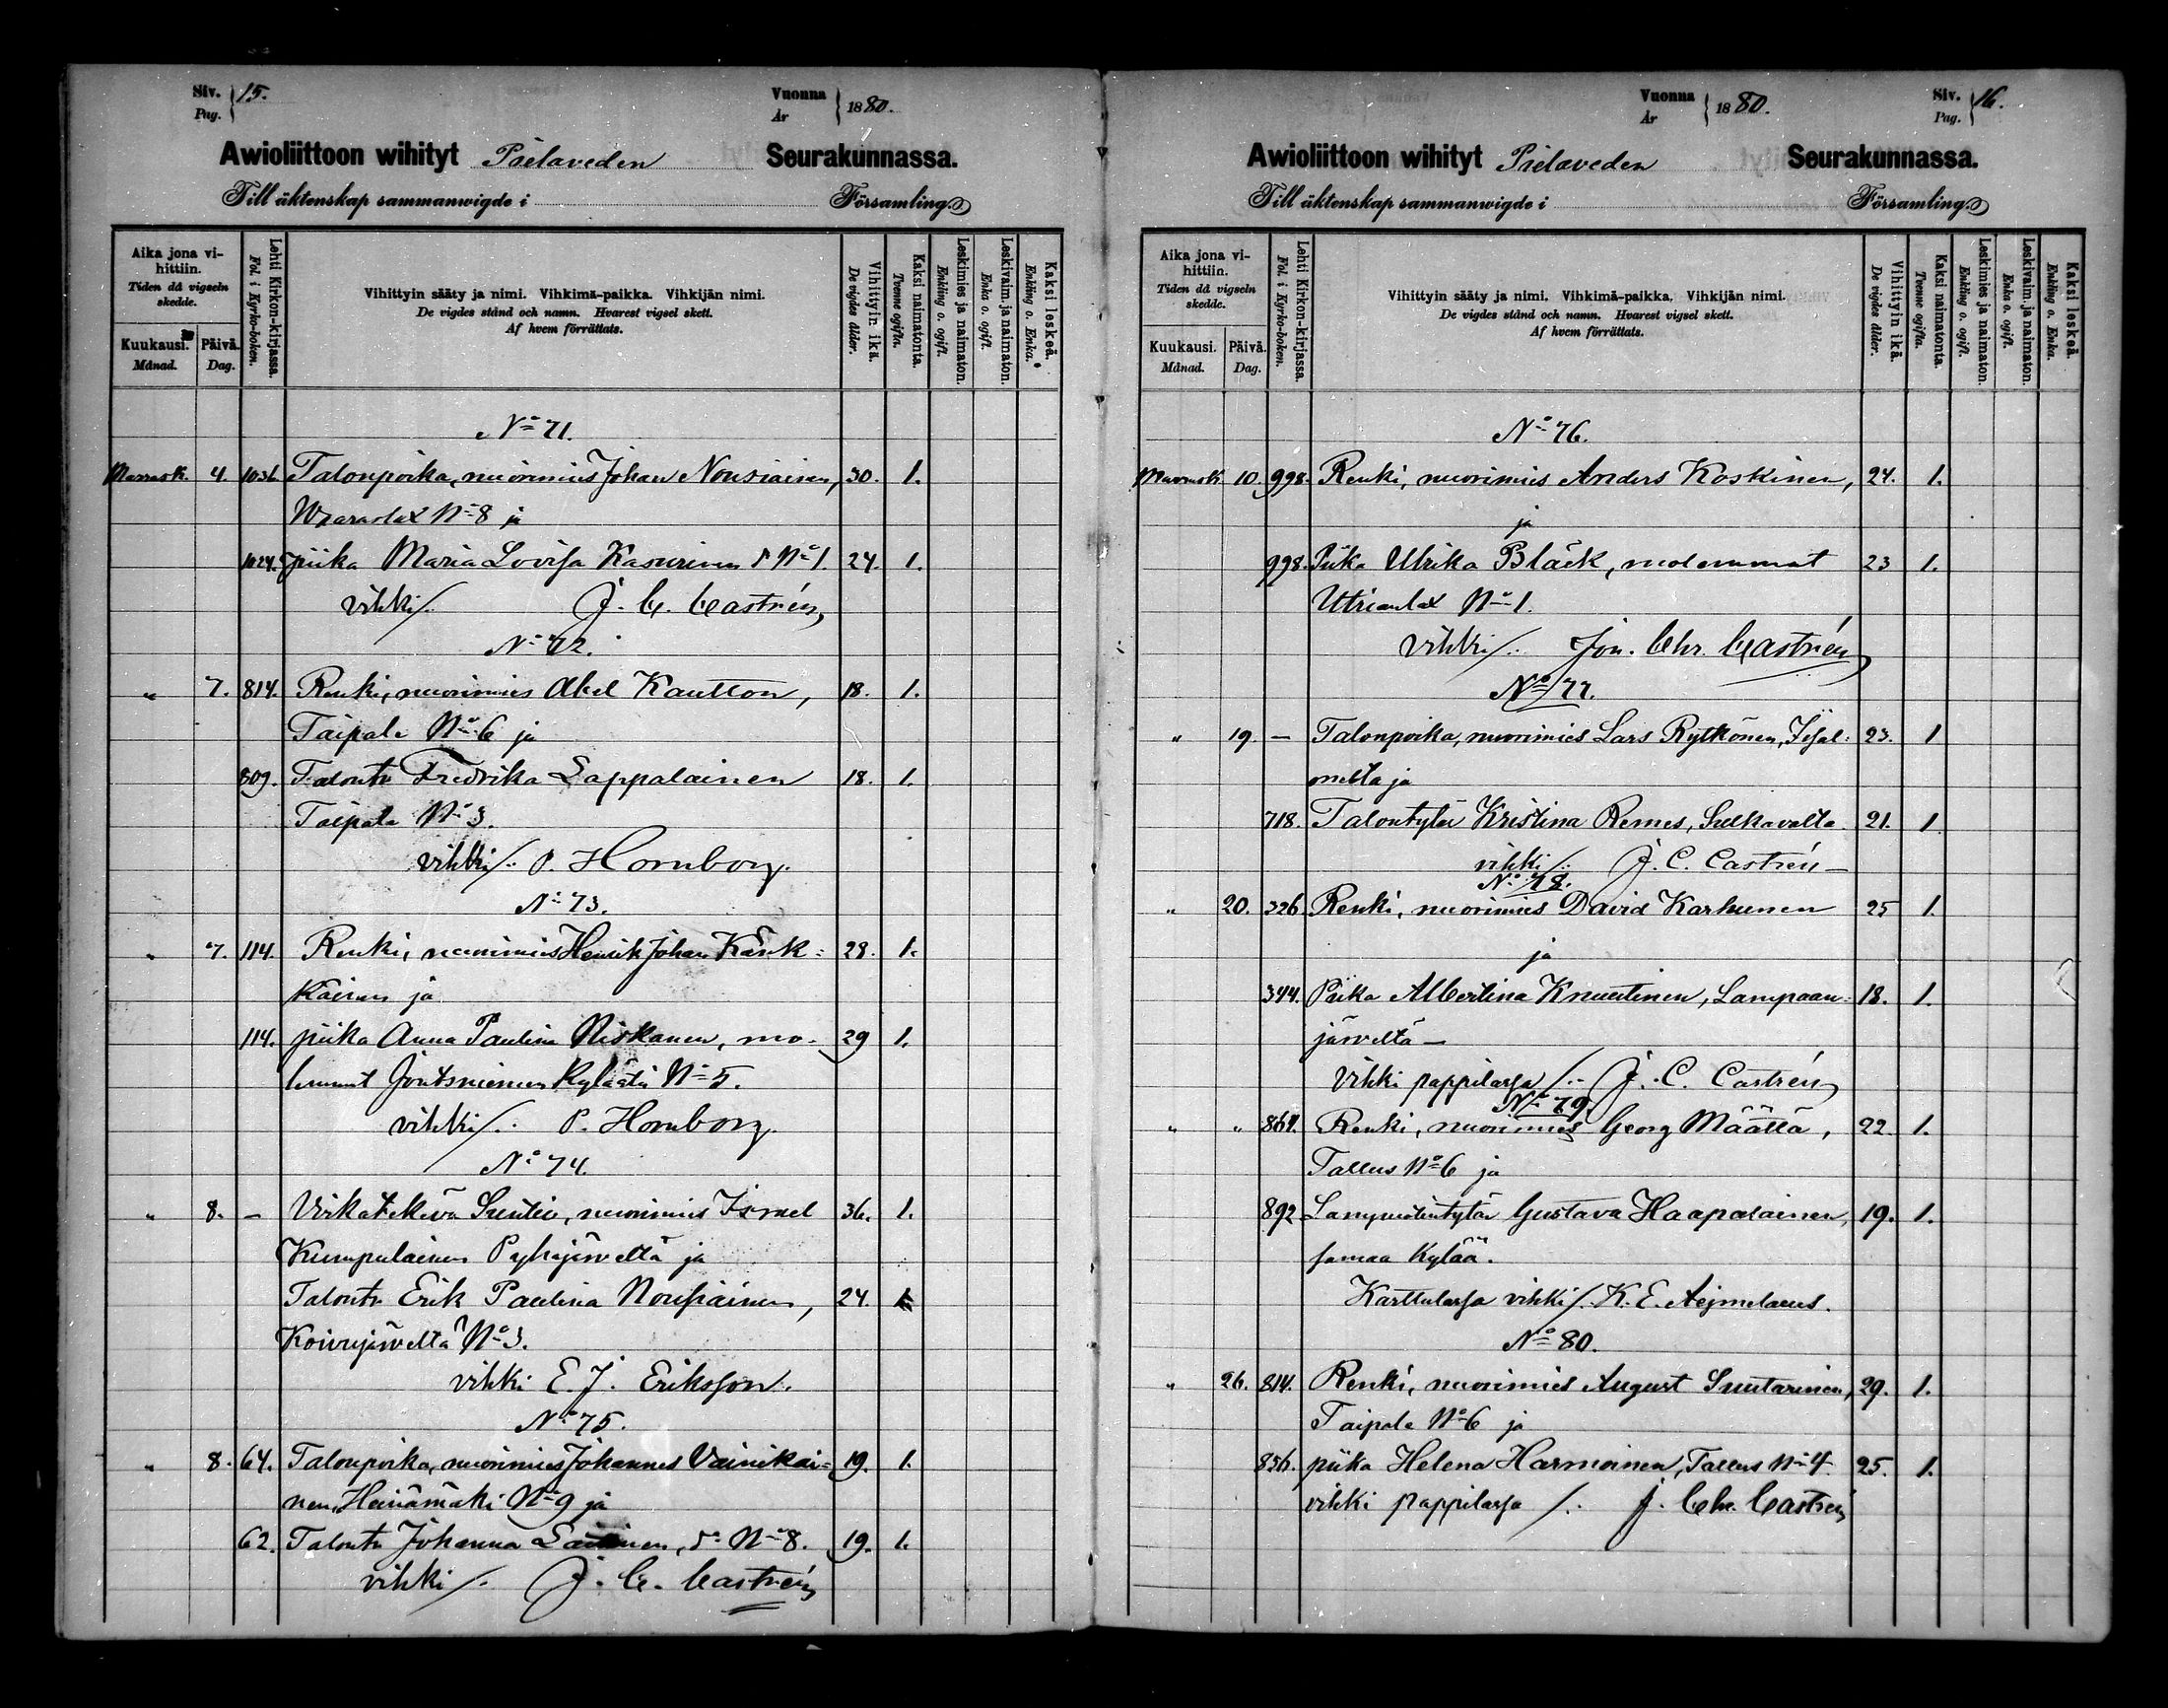 Siv. Pag. 15.
Vuonna År 1880.
Awioliittoon wihityt Pielaveden Seurakunnassa.
Till äktenskap sammanwigde i Församling.
Aika jona vihittiin. Tiden då vigseln skedde.
Kuukausi. Månad.
Päivä. Dag.
Lehti Kirkon-kirjassa. Fol. i Kyrko-boken.
Vihittyin sääty ja nimi. Vihkimä-paikka. Vihkijän nimi.
De vigdes stånd och namn. Hvarest vigsel skett.
Af hvem förrättats.
Vihittyin ikä. De vigdes ålder.
Kaksi naimatonta. Tvenne ogifta.
Leskimies ja naimaton. Enkling o. ogift.
Leskivaim. ja naimaton. Enka o. ogift.
Kaksi leskeä. Enkling o. Enka.
No 71.
Marrask. 4. 1036. Talonpoika, nuorimies Johan Nousiainen, 30. 1.
No 8 ja
1024. piika Maria Lovisa Kasurinen No 1. 24. 1.
vihki /. J. C. Castrén
No 72.
" 7. 814. Renki, nuorimies Abel Kautton, 18. 1.
Taipale No 6 ja
809. Talontr Fredrika Lappalainen 18. 1.
Taipale No 3.
vihki /. P. Hornborg.
No 73.
" 7. 114. Renki, nuorimies Henrik Johan Kärk= 28. 1.
käinen ja
114. piika Anna Paulina Niskanen, mo- 29 1.
lemmat Joutsniemen kylästä No 5.
vihki /. P. Hornborg.
No 74.
" 8. – Virkatekevä Suntio, nuorimies Israel 36. 1.
Kumpulainen Pyhäjärveltä ja
Talontr Erik Paulina Nousiainen, 24. 1.
Koivujärveltä No 3.
vihki E. J. Eriksson.
No 75.
" 8. 64. Talonpoika, nuorimies Johannes Vainikai= 19. 1.
nen, Heinämäki No 9 ja
62. Talontr Johanna No 8. 19. 1.
vihki /. J. C. Castrén
Vuonna År 1880.
Siv. Pag. 16.
Awioliittoon wihityt Pielaveden Seurakunnassa.
Till äktenskap sammanwigde i Församling.
Aika jona vihittiin. Tiden då vigseln skedde.
Kuukausi. Månad.
Päivä. Dag.
Lehti Kirkon-kirjassa. Fol. i Kyrko-boken.
Vihittyin sääty ja nimi. Vihkimä-paikka. Vihkijän nimi.
De vigdes stånd och namn. Hvarest vigsel skett.
Af hvem förrättats.
Vihittyin ikä. De vigdes ålder.
Kaksi naimatonta. Tvenne ogifta.
Leskimies ja naimaton. Enkling o. ogift.
Leskivaim. ja naimaton. Enka o. ogift.
Kaksi leskeä. Enkling o. Enka.
No 76.
Marrask. 10. 998. Renki, nuorimies Anders Koskinen, 24. 1.
ja
998. Piika Ulrika Bläck, molemmat 23 1.
No 1.
vihki /. Joh. Chr. Castrén
No 77.
" 19. – Talonpoika, nuorimies Lars Rytkönen, Iisal= 23. 1
melta ja
718. Talontytär Kristina Remes, Sulkavalta 21. 1
vihki /. J. C. Castrén –
No 78.
" 20. 326 Renki, nuorimies David Karhunen 25 1.
ja
344. Piika Albertina Knuutinen, Lampaan= 18. 1.
järveltä –
vihki pappilassa /. J. C. Castrén
No 79.
" " 864. Renki, nuorimies Georg Määttä, 22. 1.
Tallus No 6 ja
892 Lampuotintytär Gustava Haapalainen, 19. 1.
samaa kylää.
Karttulassa vihki /. K. E. Aejmelaeus.
No 80.
" 26. 814. Renki, nuorimies August Suutarinen, 29. 1.
Taipale No 6 ja
856. piika Helena Harmoinen, Tallus No 4. 25. 1.
vihki pappilassa /. J. Chr. Castrén